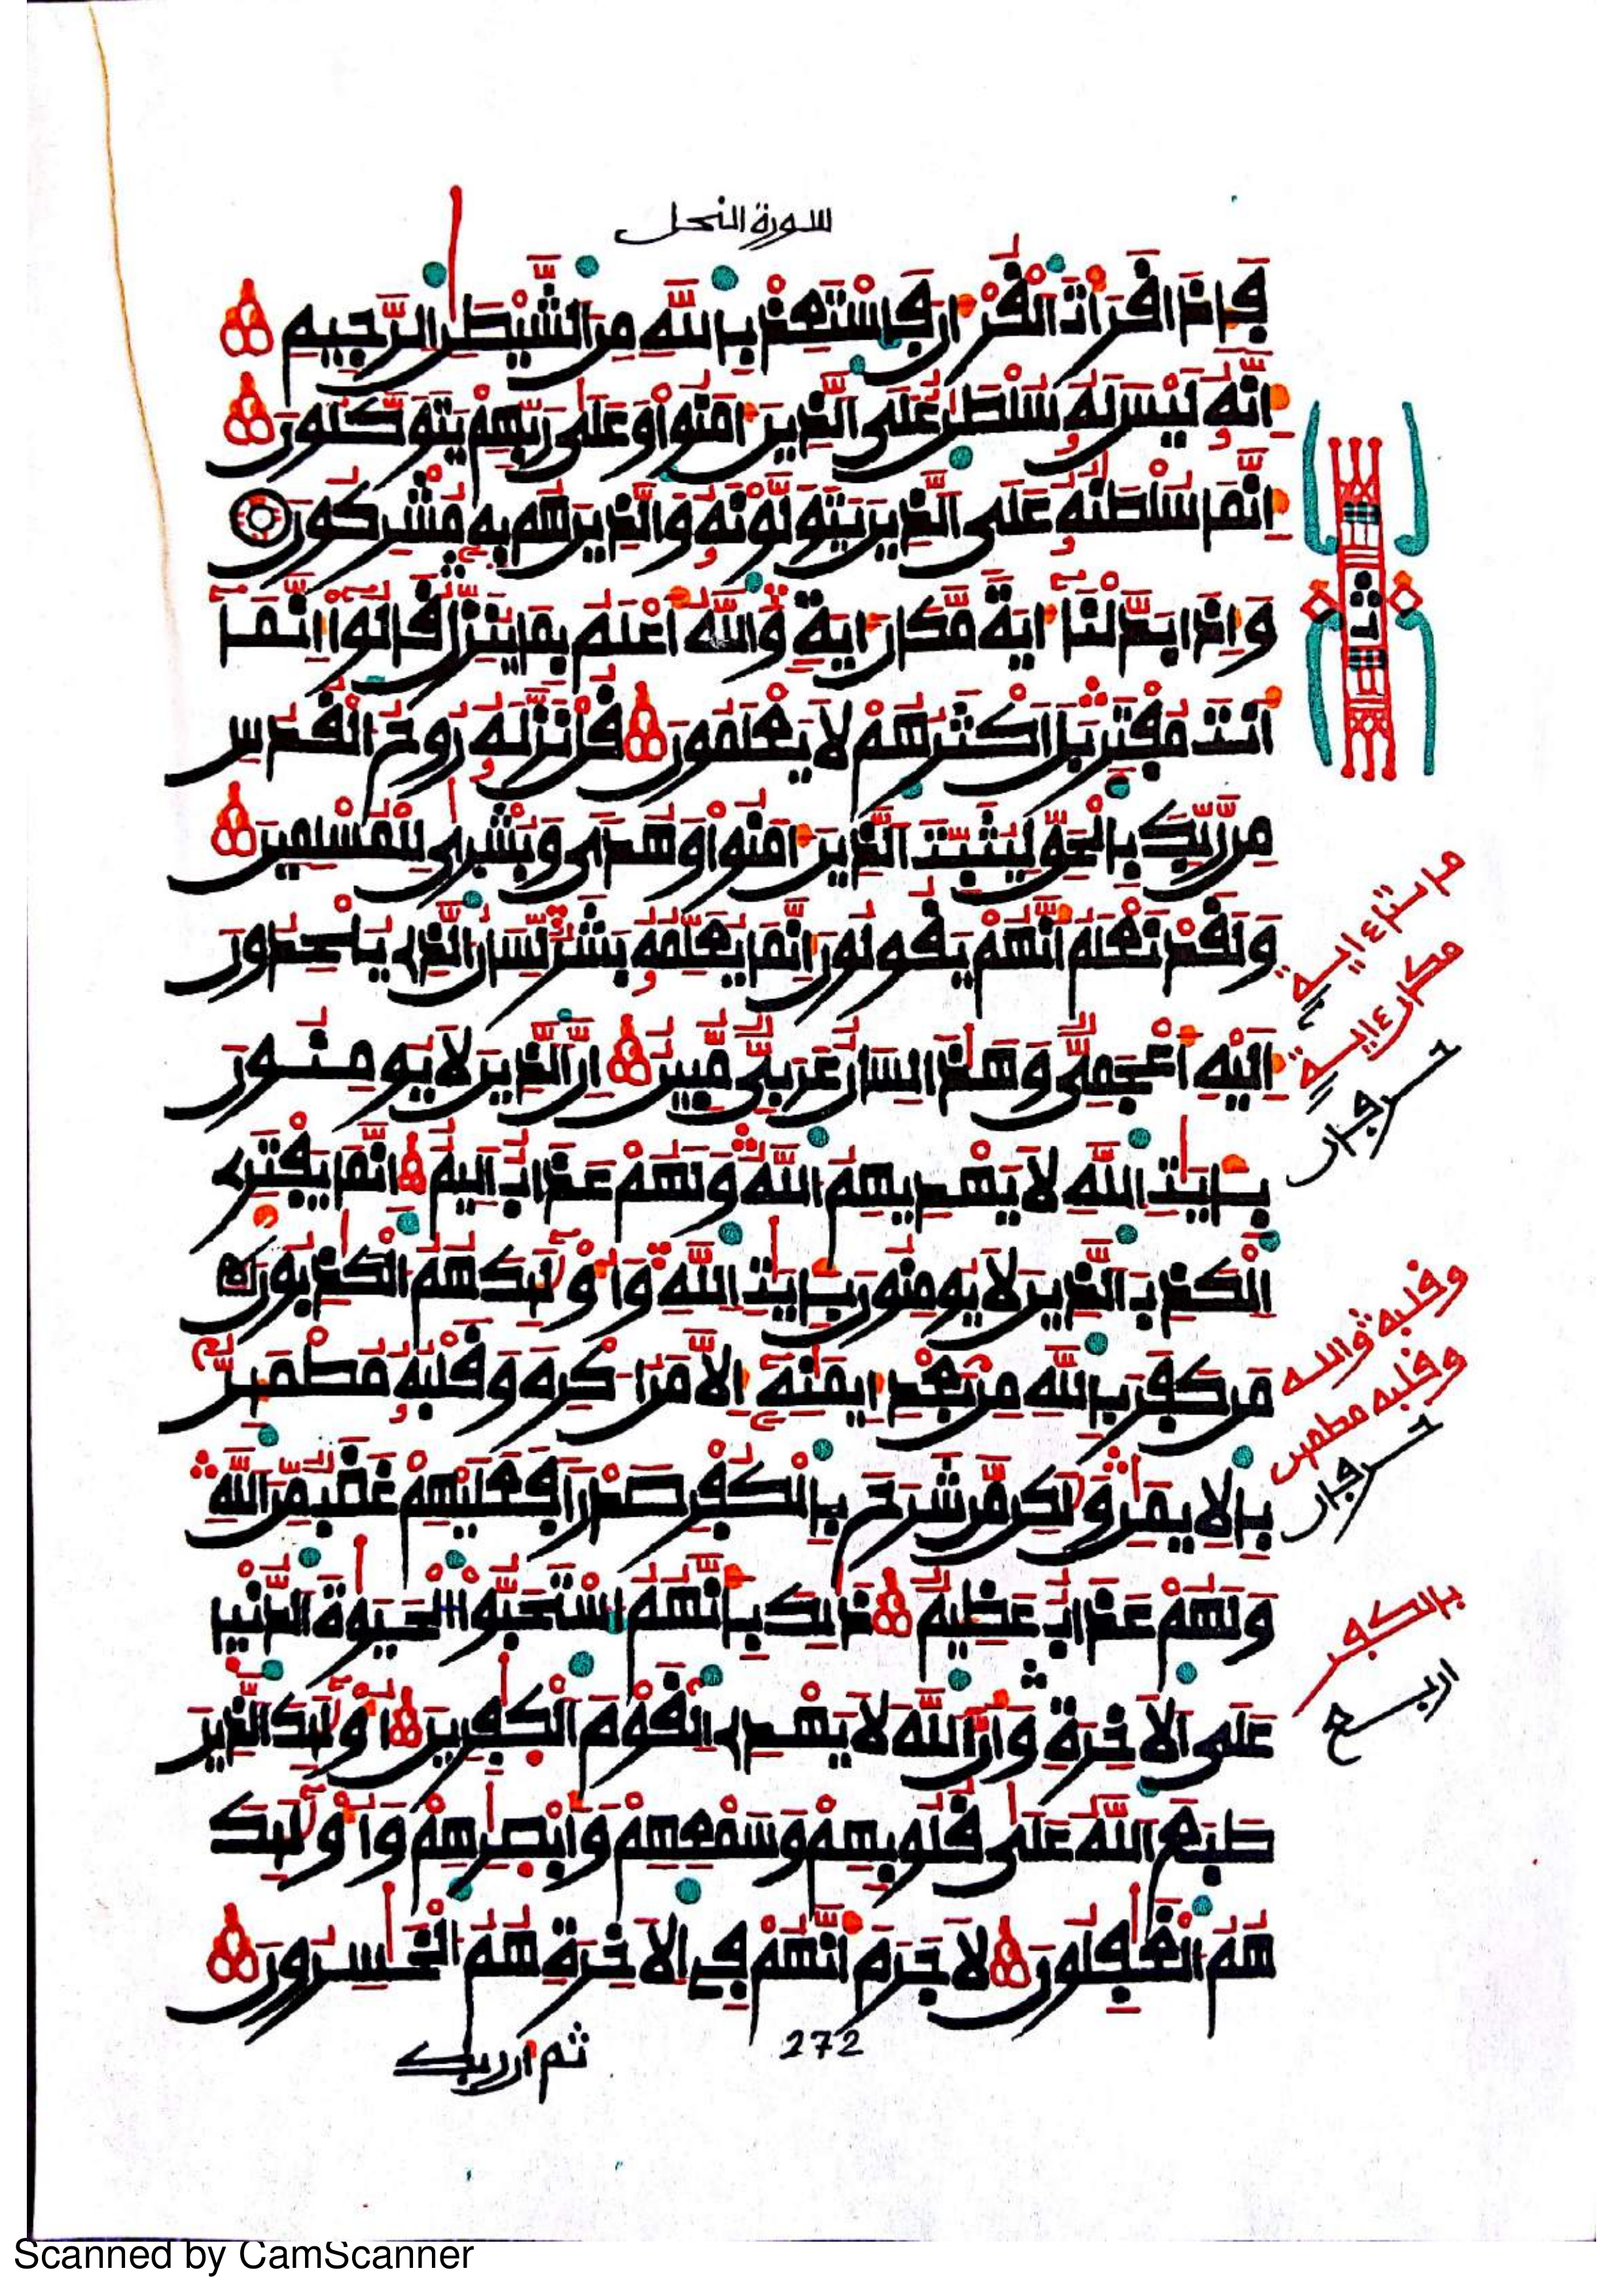 سورة النحل
فَإِذَا قَرَأْتَ الْقُرْءَانَ فَاسْتَعِذْ بِاللَّهِ مِنَ الشَّيْطَٰنِ الرَّجِيمِ
إِنَّهُ لَيْسَ لَهُ سُلْطَٰنٌ عَلَى الَّذِينَ ءَامَنُوا وَعَلَىٰ رَبِّهِمْ يَتَوَكَّلُونَ
إِنَّمَا سُلْطَٰنُهُ عَلَى الَّذِينَ يَتَوَلَّوْنَهُ وَالَّذِينَ هُم بِهِ مُشْرِكُونَ
وَإِذَا بَدَّلْنَا ءَايَةً مَّكَانَ ءَايَةٍ وَاللَّهُ أَعْلَمُ بِمَا يُنَزِّلُ قَالُوا إِنَّمَا
أَنتَ مُفْتَرٍ بَلْ أَكْثَرُهُمْ لَا يَعْلَمُونَ قُلْ نَزَّلَهُ رُوحُ الْقُدُسِ
مِن رَّبِّكَ بِالْحَقِّ لِيُثَبِّتَ الَّذِينَ ءَامَنُوا وَهُدًى وَبُشْرَىٰ لِلْمُسْلِمِينَ
وَلَقَدْ نَعْلَمُ أَنَّهُمْ يَقُولُونَ إِنَّمَا يُعَلِّمُهُ بَشَرٌ لِّسَانُ الَّذِي يُلْحِدُونَ
إِلَيْهِ أَعْجَمِيٌّ وَهَٰذَا لِسَانٌ عَرَبِيٌّ مُّبِينٌ إِنَّ الَّذِينَ لَا يُومِنُونَ
بِـَٔايَٰتِ اللَّهِ لَا يَهْدِيهِمُ اللَّهُ وَلَهُمْ عَذَابٌ أَلِيمٌ إِنَّمَا يَفْتَرِي
الْكَذِبَ الَّذِينَ لَا يُومِنُونَ بِـَٔايَٰتِ اللَّهِ وَأُوْلَٰٓئِكَ هُمُ الْكَٰذِبُونَ
مَن كَفَرَ بِاللَّهِ مِن بَعْدِ إِيمَٰنِهِ إِلَّا مَنْ أُكْرِهَ وَقَلْبُهُ مُطْمَئِنٌّ
بِالْإِيمَٰنِ وَلَٰكِن مَّن شَرَحَ بِالْكُفْرِ صَدْرًا فَعَلَيْهِمْ غَضَبٌ مِّنَ اللَّهِ
وَلَهُمْ عَذَابٌ عَظِيمٌ ذَٰلِكَ بِأَنَّهُمُ اسْتَحَبُّوا الْحَيَوٰةَ الدُّنْيَا
عَلَى الْأَخِرَةِ وَأَنَّ اللَّهَ لَا يَهْدِي الْقَوْمَ الْكَٰفِرِينَ أُوْلَٰٓئِكَ الَّذِينَ
طَبَعَ اللَّهُ عَلَىٰ قُلُوبِهِمْ وَسَمْعِهِمْ وَأَبْصَٰرِهِمْ وَأُوْلَٰٓئِكَ
هُمُ الْغَٰفِلُونَ لَا جَرَمَ أَنَّهُمْ فِي الْأَخِرَةِ هُمُ الْخَٰسِرُونَ
272
ثم ان ربك
ثمن
مكان ءاية
وقلبه والله
وقلبه مطمئن
بالكفر
اربع
Scanned by CamScanner